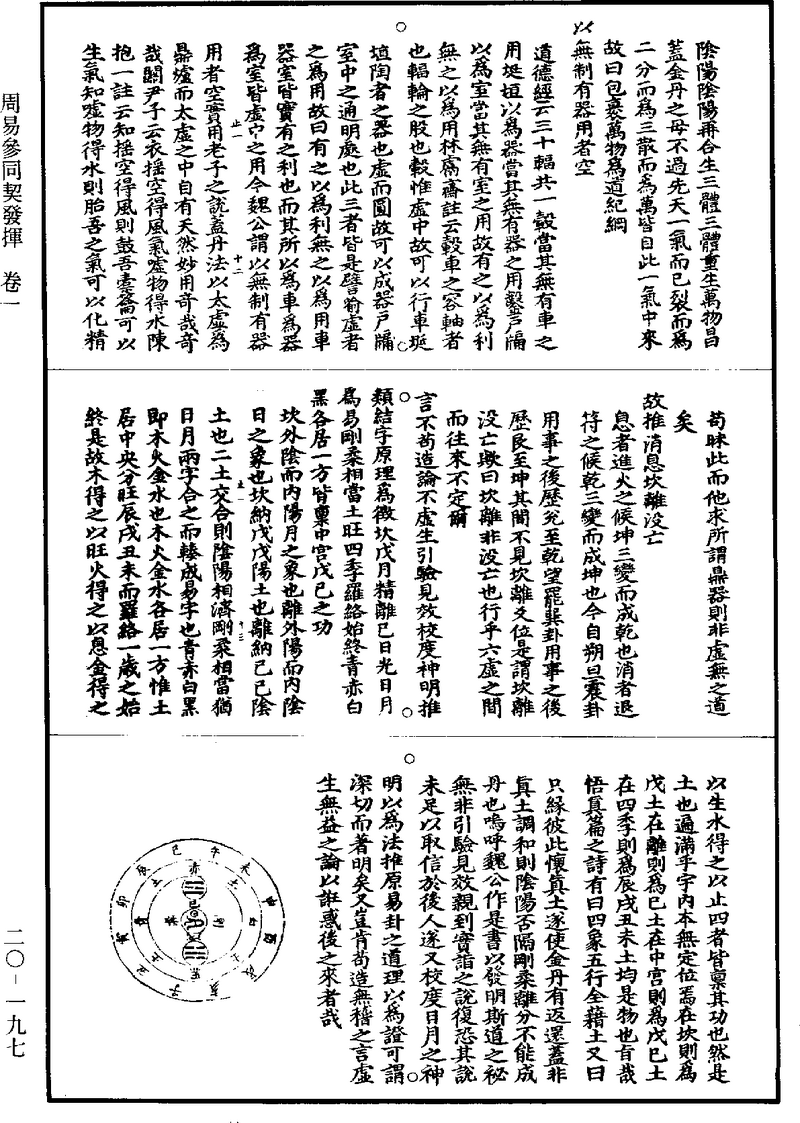 周易參同契發揮 卷一
二〇-一九七
陰陽陰陽再合生三體三體重生萬物昌
蓋金丹之母不過先天一氣而已裂而為
二分而為三散而為萬皆自此一氣中來
故曰包裹萬物為道紀綱
以無制有器用者空
道德經云三十輻共一轂當其無有車之
用埏埴以為器當其無有器之用鑿戶牖
以為室當其無有室之用故有之以為利
無之以為用林鬳齋註云轂車之容軸者
也輻輪之股也轂惟虛中故可以行車埏
埴陶者之器也虛而圓故可以成器戶牖
室中之通明處也此三者皆是譬喻虛者
之為用故曰有之以為利無之以為用車
器室皆實有之利也而其所以為車為器
為室皆虛中之用今魏公謂以無制有器
用者空實用老子之說蓋丹法以太虛為
鼎爐而太虛之中自有天然妙用奇哉奇
哉關尹子云衣搖空得風氣噓物得水陳
抱一註云知搖空得風則鼓吾橐籥可以
生氣知噓物得水則胎吾之氣可以化精
苟昧此而他求所謂鼎器則非虛無之道
矣
故推消息坎離沒亡
息者進火之候坤三變而成乾也消者退
符之候乾三變而成坤也今自朔旦震卦
用事之後歷兌至乾望罷巽卦用事之後
歷艮至坤其間不見坎離爻位是謂坎離
沒亡歟曰坎離非沒亡也行乎六虛之間
而往來不定爾
言不苟造論不虛生引驗見效校度神明推
類結字原理為徵坎戊月精離己日光日月
為易剛柔相當土旺四季羅絡始終青赤白
黑各居一方皆稟中宮戊己之功
坎外陰而內陽月之象也離外陽而內陰
日之象也坎納戊戊陽土也離納己己陰
土也二土交合則陰陽相濟剛柔相當猶
日月兩字合之而轃成易字也青赤白黑
即木火金水也木火金水各居一方惟土
居中央分旺辰戌丑未而羅絡一歲之始
終是故木得之以旺火得之以息金得之
以生水得之以止四者皆稟其功也然是
土也遍滿乎宇內本無定位焉在坎則為
戊土在離則為己土在中宮則為戊己土
在四季則為辰戌丑未土均是物也旨哉
悟真篇之詩有曰四象五行全藉土又曰
只緣彼此懷真土遂使金丹有返還蓋非
真土調和則陰陽否隔剛柔離分不能成
丹也嗚呼魏公作是書以發明斯道之秘
無非引驗見效親到實詣之說復恐其說
未足以取信於後人遂又校度日月之神
明以為法推原易卦之道理以為證可謂
深切而著明矣又豈肯苟造無稽之言虛
生無益之論以誑惑後之來者哉